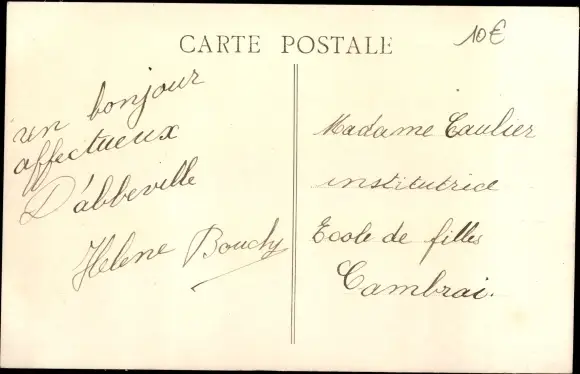 CARTE POSTALE
10€
un bonjour
affectueux
D'abbeville
Helene Bouchy
Madame Caulier
institutrice
Ecole de filles
Cambrai.